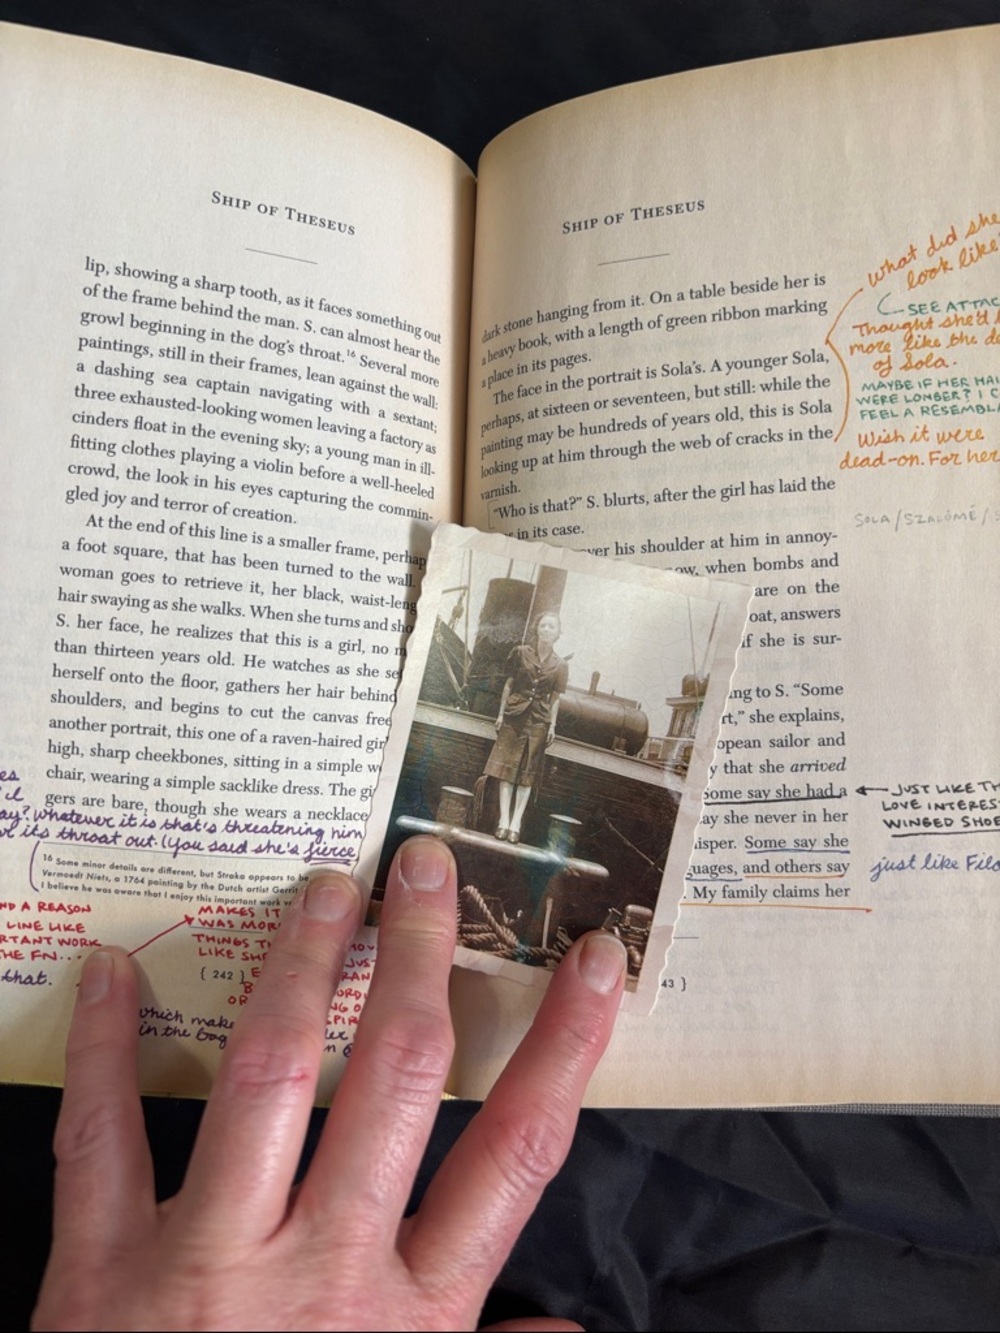 SHIP OF THESEUS
lip, showing a sharp tooth, as it faces something out
of the frame behind the man. S. can almost hear the
growl beginning in the dog's throat.16 Several more
paintings, still in their frames, lean against the wall:
a dashing sea captain navigating with a sextant;
three exhausted-looking women leaving a factory as
cinders float in the evening sky; a young man in ill-
fitting clothes playing a violin before a well-heeled
crowd, the look in his eyes capturing the commin-
gled joy and terror of creation.
At the end of this line is a smaller frame, perhap
a foot square, that has been turned to the wall.
woman goes to retrieve it, her black, waist-leng
hair swaying as she walks. When she turns and sho
S. her face, he realizes that this is a girl, no m
than thirteen years old. He watches as she se
herself onto the floor, gathers her hair behind
shoulders, and begins to cut the canvas free
another portrait, this one of a raven-haired gir
high, sharp cheekbones, sitting in a simple w
chair, wearing a simple sacklike dress. The gi
gers are bare, though she wears a necklace
ay? Whatever it is that's threatening him
its throat out. (You said she's fierce
16 Some minor details are different, but Straka appears to be
Vermoedt Niets, a 1764 painting by the Dutch artist Gerrit
I believe he was aware that I enjoy this important work
ND A REASON
LINE LIKE
RTANT WORK
THE FN...
that.
MAKES IT
WAS MOR
THINGS TH
LIKE SHE
{ 242 }
which make
in the bag
SHIP OF THESEUS
dark stone hanging from it. On a table beside her is
a heavy book, with a length of green ribbon marking
a place in its pages.
The face in the portrait is Sola's. A younger Sola,
perhaps, at sixteen or seventeen, but still: while the
painting may be hundreds of years old, this is Sola
looking up at him through the web of cracks in the
varnish.
"Who is that?" S. blurts, after the girl has laid the
in its case.
ver his shoulder at him in annoy-
ow, when bombs and
are on the
oat, answers
if she is sur-
ing to S. "Some
rt," she explains,
opean sailor and
y that she arrived
Some say she had a
ay she never in her
isper. Some say she
guages, and others say
. My family claims her
43 }
What did she
look like?
SEE ATTAC
Thought she'd
more like the de
of Sola.
MAYBE IF HER HAI
WERE LONGER? I C
FEEL A RESEMBLA
Wish it were
dead-on. For her
SOLA/SZALÓMÉ/S
JUST LIKE TH
LOVE INTERES
WINGED SHOE
just like Filo